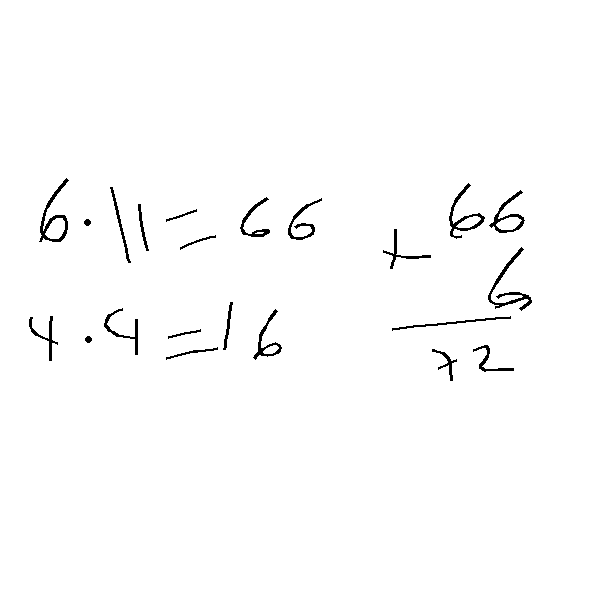 6·11=66
4·4=16
66
+ 6
72